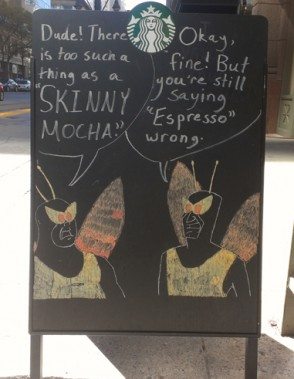 Dude! There
is too such a
thing as a
"SKINNY
MOCHA."
Okay,
fine! But
you're still
saying
"Espresso"
wrong.